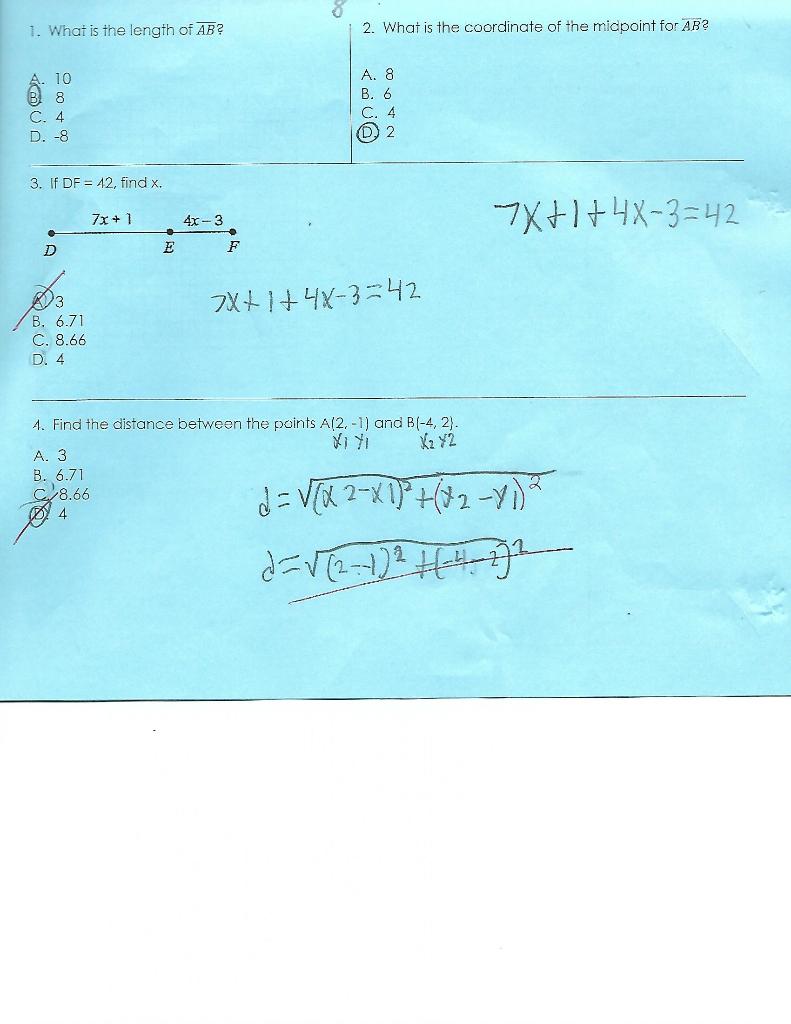 8
1. What is the length of AB?
A. 10
B. 8
C. 4
D. -8
2. What is the coordinate of the midpoint for AB?
A. 8
B. 6
C. 4
D. 2
3. If DF = 42, find x.
7x + 1 4x – 3
D E F
7X+1+4X-3=42
A. 3
B. 6.71
C. 8.66
D. 4
7X+1+4X-3=42
4. Find the distance between the points A(2, -1) and B(-4, 2).
X1 Y1 X2 Y2
A. 3
B. 6.71
C. 8.66
D. 4
d=√(X2-X1)²+(Y2-Y1)²
d=√(2--1)²+(-4-2)²